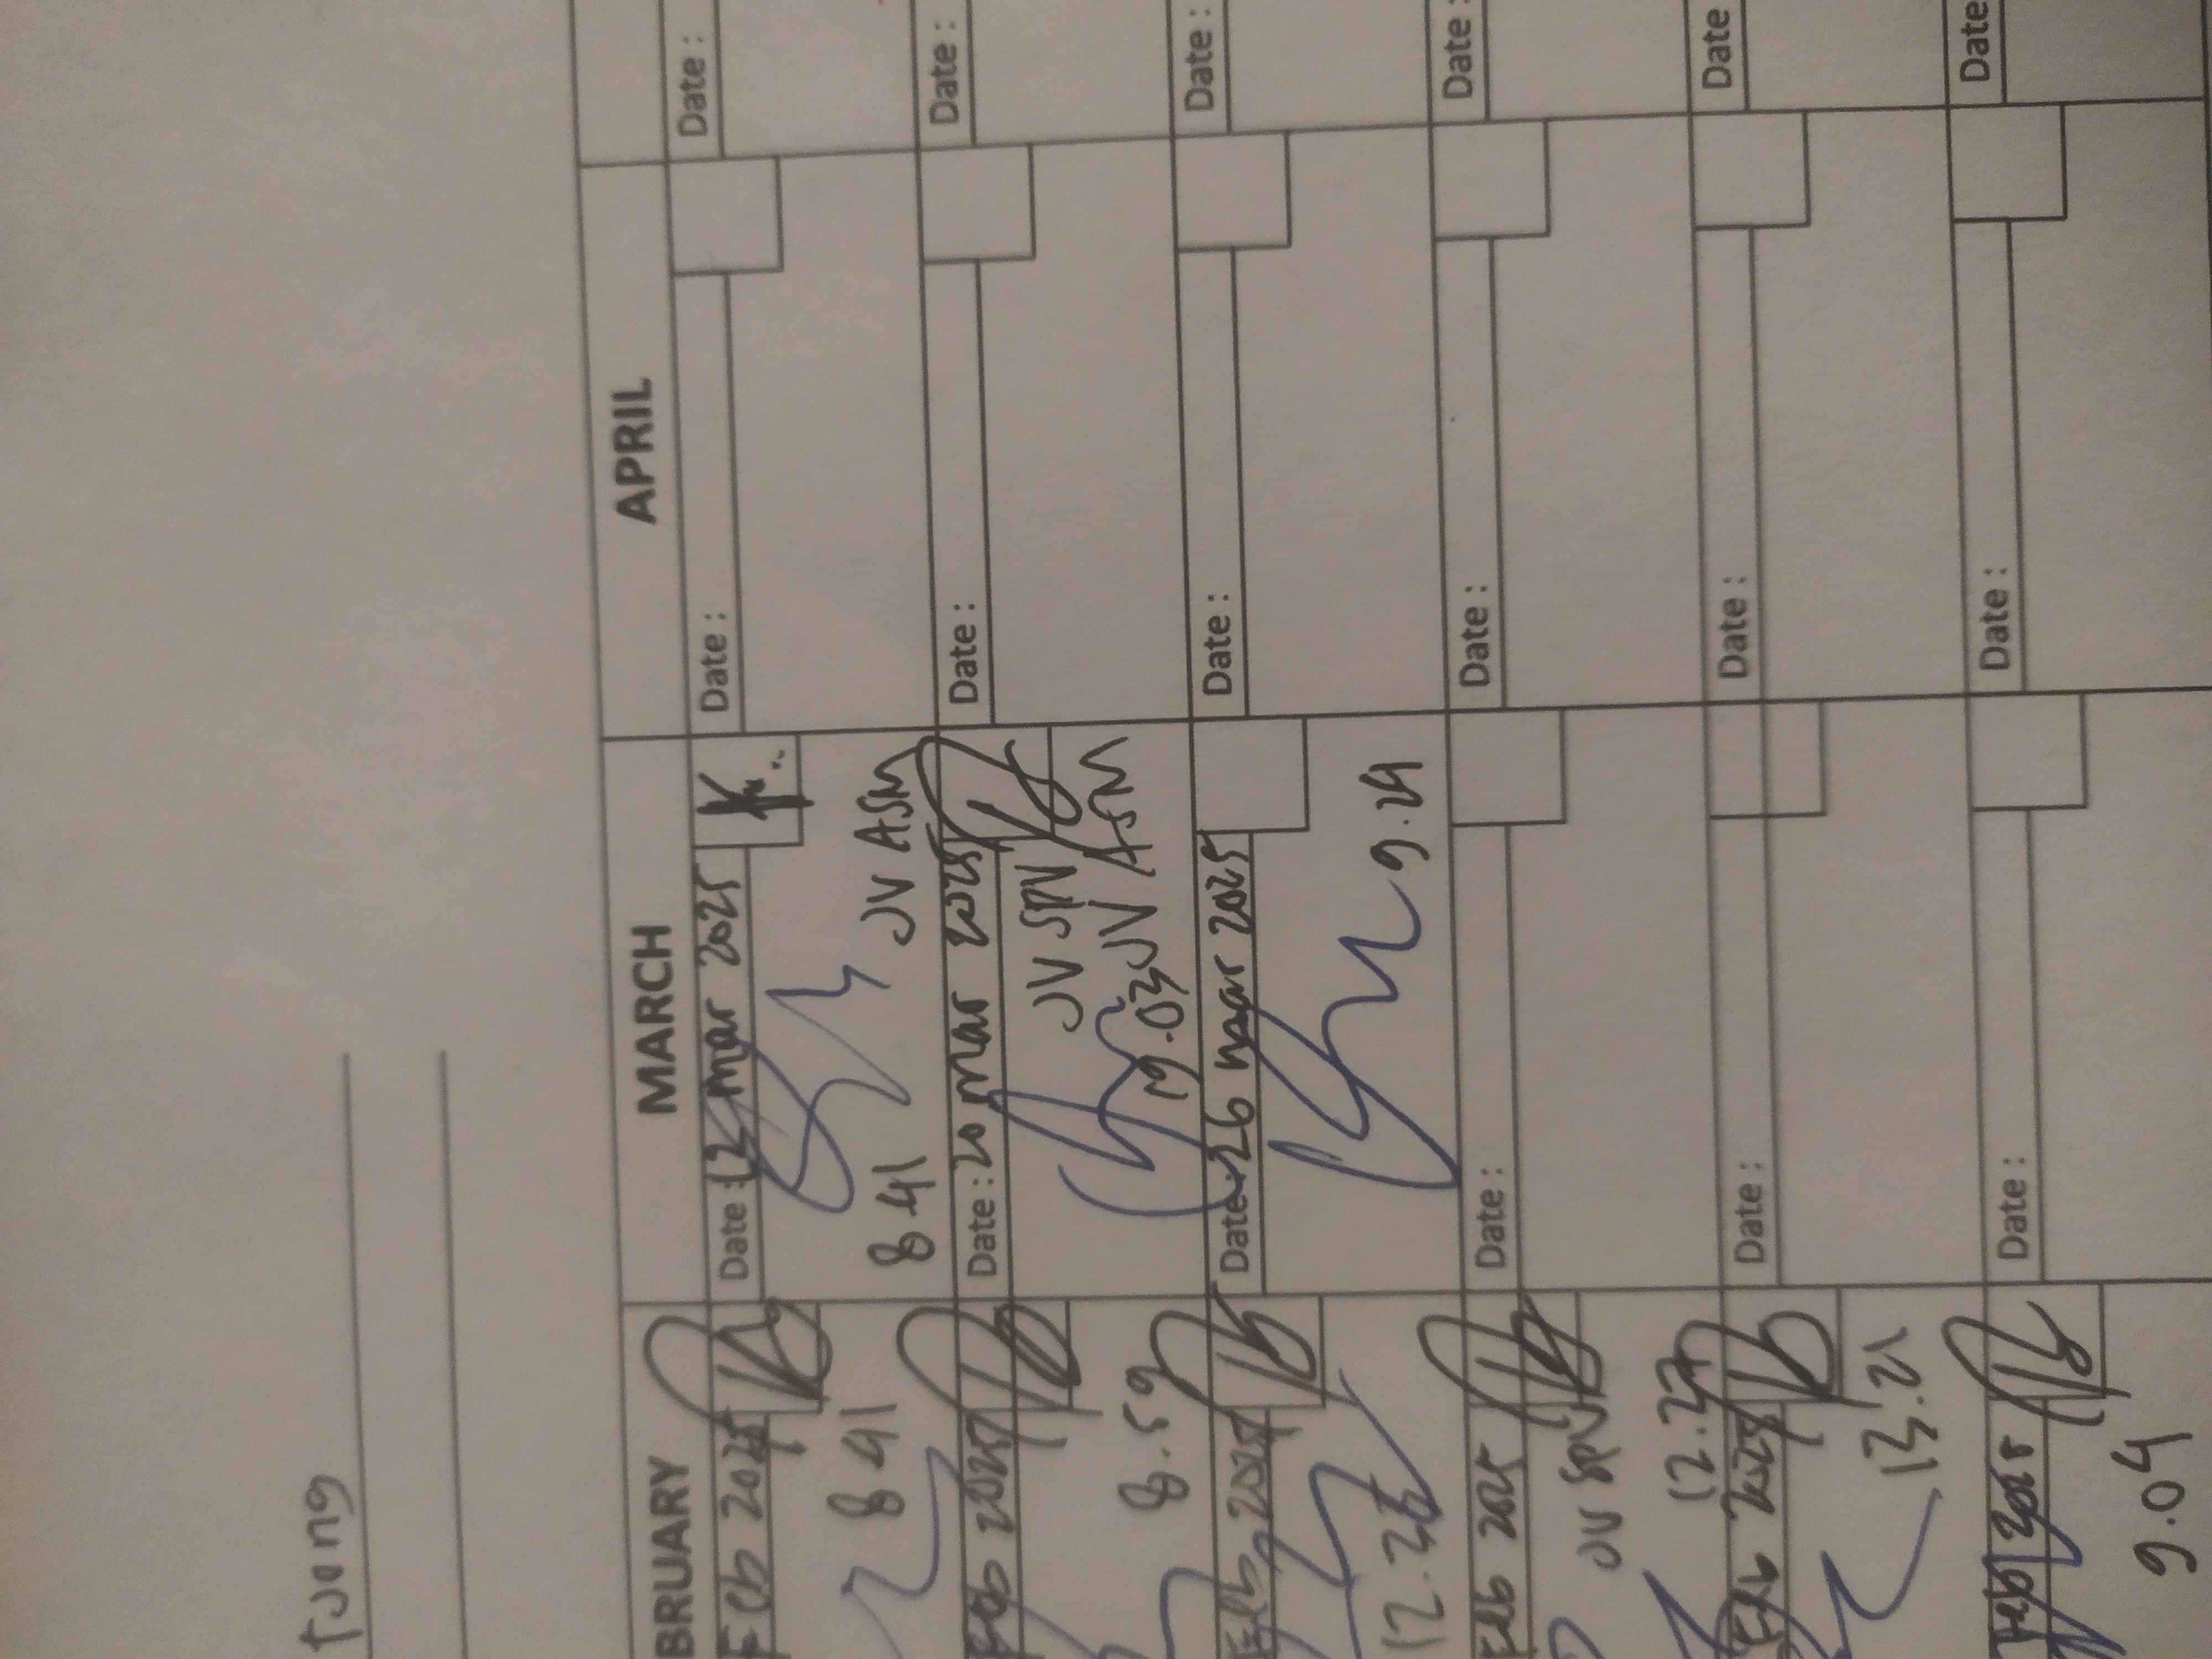 tjong
BRUARY MARCH APRIL
Feb 2025 Date : 12 mar 2025 Date : Date :
8 41 8 41 JV ASM
Feb 2025 Date : 20 mar 2025 Date : Date :
8.59 JV SPV
19.03 JV ASM
Feb 2025 Date : 26 mar 2025 Date : Date :
9.29
Feb 2025 Date : Date : Date :
JV SPV
12.27
Feb 2025 Date : Date : Date
13.21
Feb Date : Date : Date
9.04